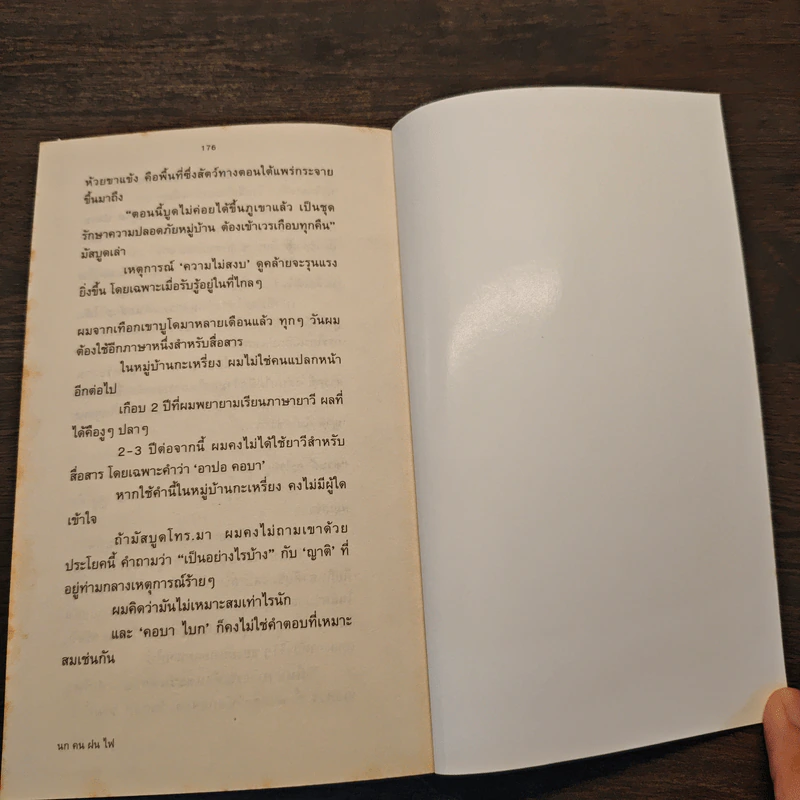 176
ห้วยขาแข้ง คือพื้นที่ซึ่งสัตว์ทางตอนใต้แพร่กระจาย
ขึ้นมาถึง
“ตอนนี้บูดไม่ค่อยได้ขึ้นภูเขาแล้ว เป็นชุด
รักษาความปลอดภัยหมู่บ้าน ต้องเข้าเวรเกือบทุกคืน”
มัสบูดเล่า
เหตุการณ์ ‘ความไม่สงบ’ ดูคล้ายจะรุนแรง
ยิ่งขึ้น โดยเฉพาะเมื่อรับรู้อยู่ในที่ไกลๆ
ผมจากเทือกเขาบูโดมาหลายเดือนแล้ว ทุกๆ วันผม
ต้องใช้อีกภาษาหนึ่งสำหรับสื่อสาร
ในหมู่บ้านกะเหรี่ยง ผมไม่ใช่คนแปลกหน้า
อีกต่อไป
เกือบ 2 ปีที่ผมพยายามเรียนภาษายาวี ผลที่
ได้คืองูๆ ปลาๆ
2-3 ปีต่อจากนี้ ผมคงไม่ได้ใช้ยาวีสำหรับ
สื่อสาร โดยเฉพาะคำว่า ‘อาปอ คอบา’
หากใช้คำนี้ในหมู่บ้านกะเหรี่ยง คงไม่มีผู้ใด
เข้าใจ
ถ้ามัสบูดโทร.มา ผมคงไม่ถามเขาด้วย
ประโยคนี้ คำถามว่า “เป็นอย่างไรบ้าง” กับ ‘ญาติ’ ที่
อยู่ท่ามกลางเหตุการณ์ร้ายๆ
ผมคิดว่ามันไม่เหมาะสมเท่าไรนัก
และ ‘คอบา ไบก’ ก็คงไม่ใช่คำตอบที่เหมาะ
สมเช่นกัน
นก คน ฝน ไฟ